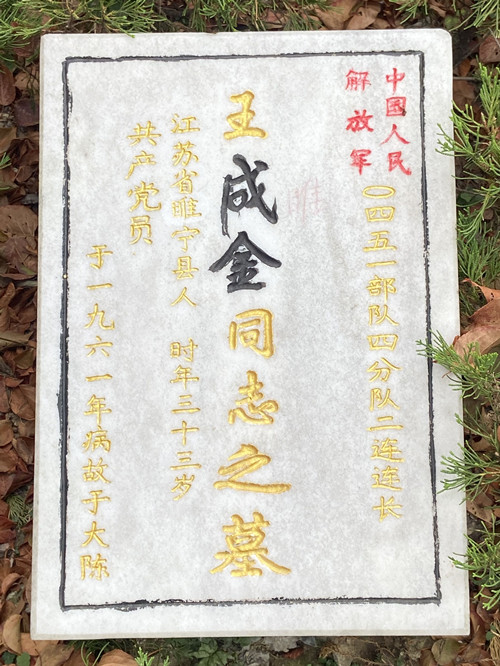 中国人民
解放军
〇四五一部队四分队二连连长
王成金同志之墓
江苏省睢宁县人 时年三十三岁
共产党员
于一九六一年病故于大陈